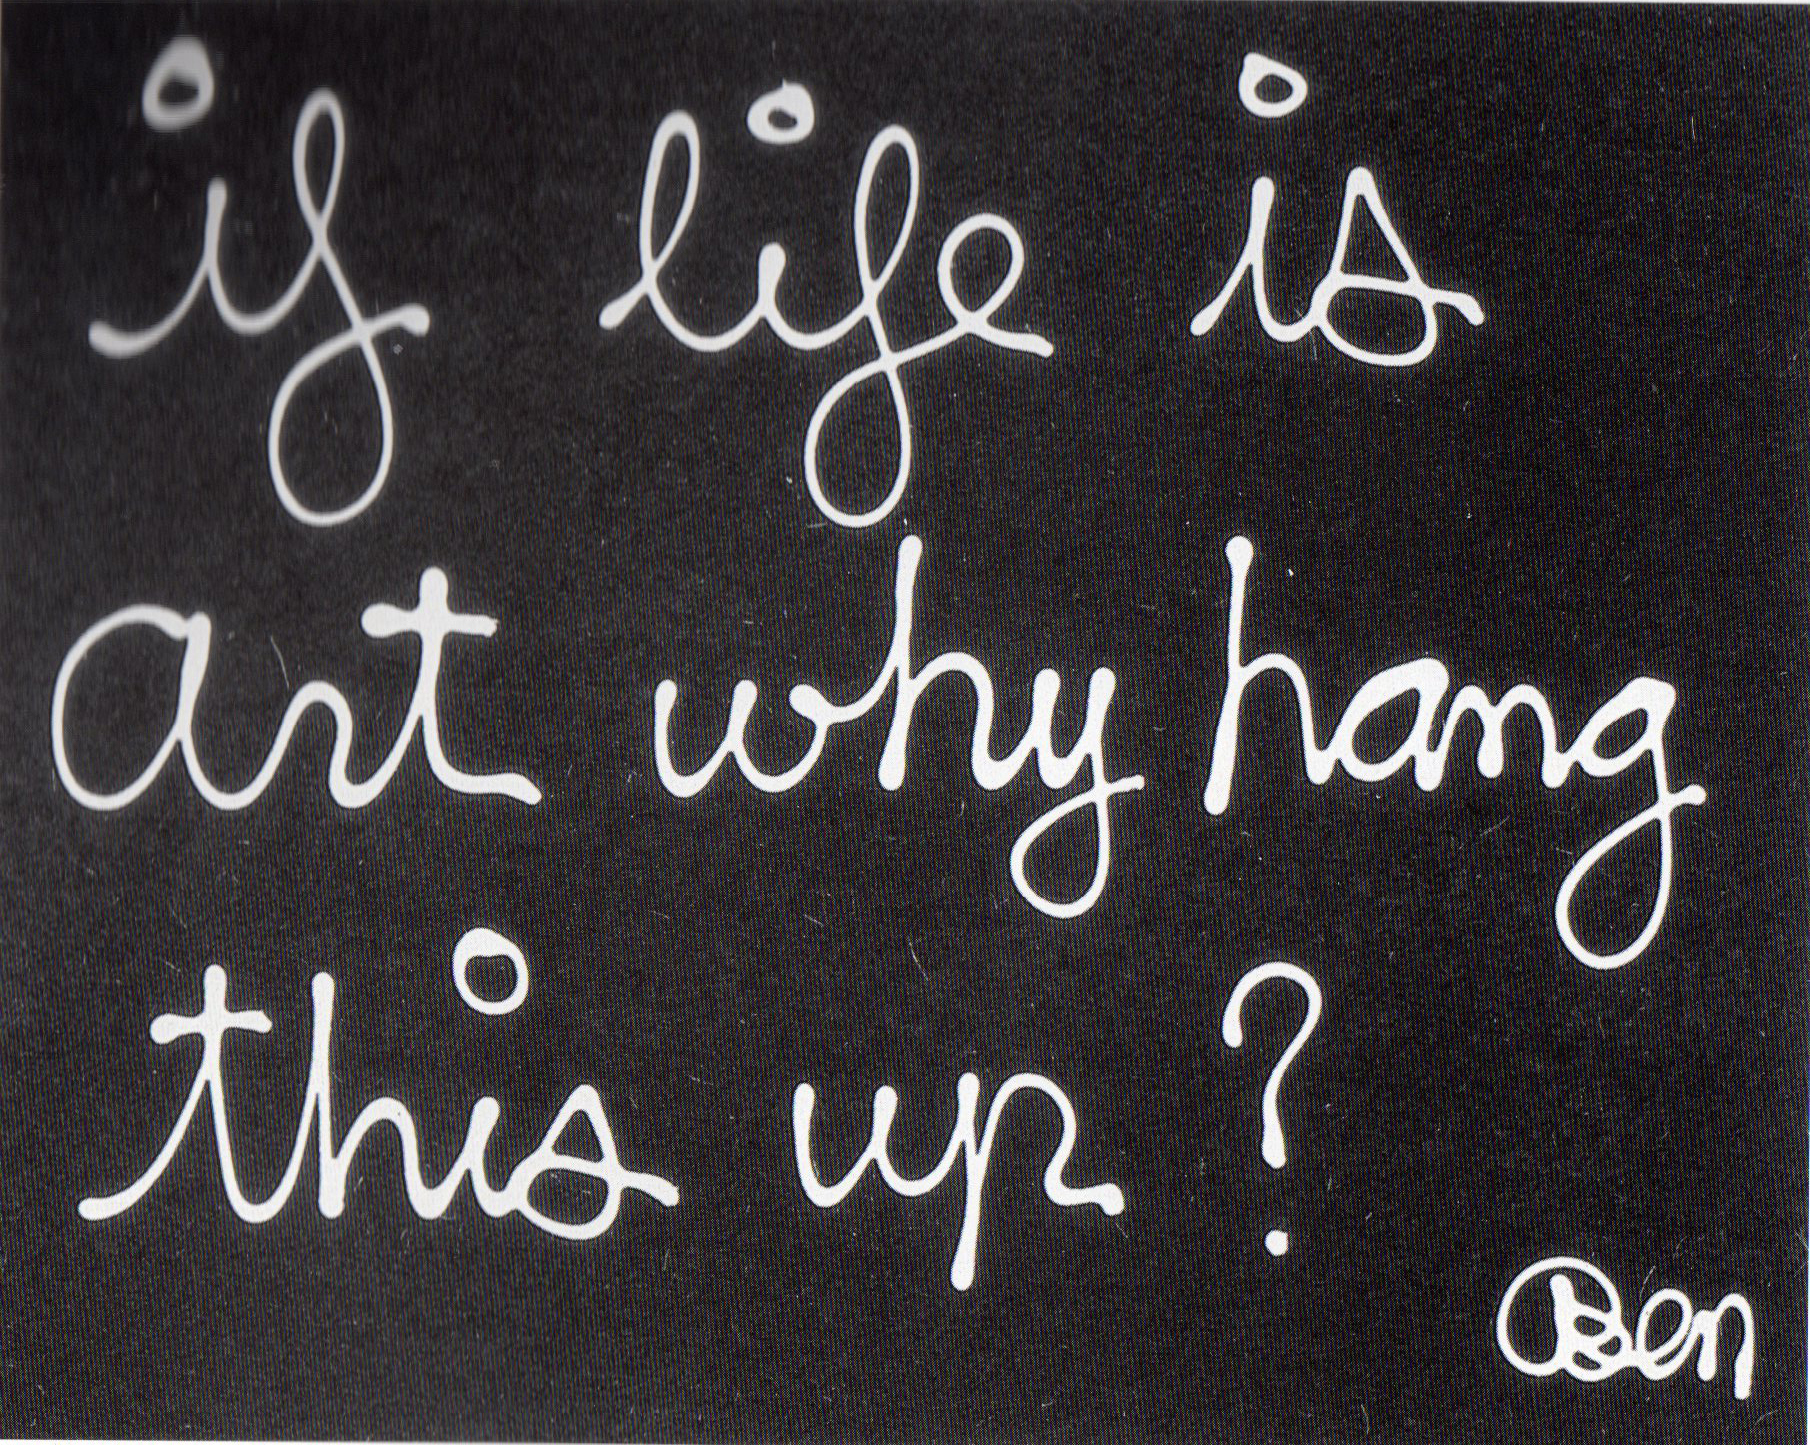 if life is
art why hang
this up ?
Ben